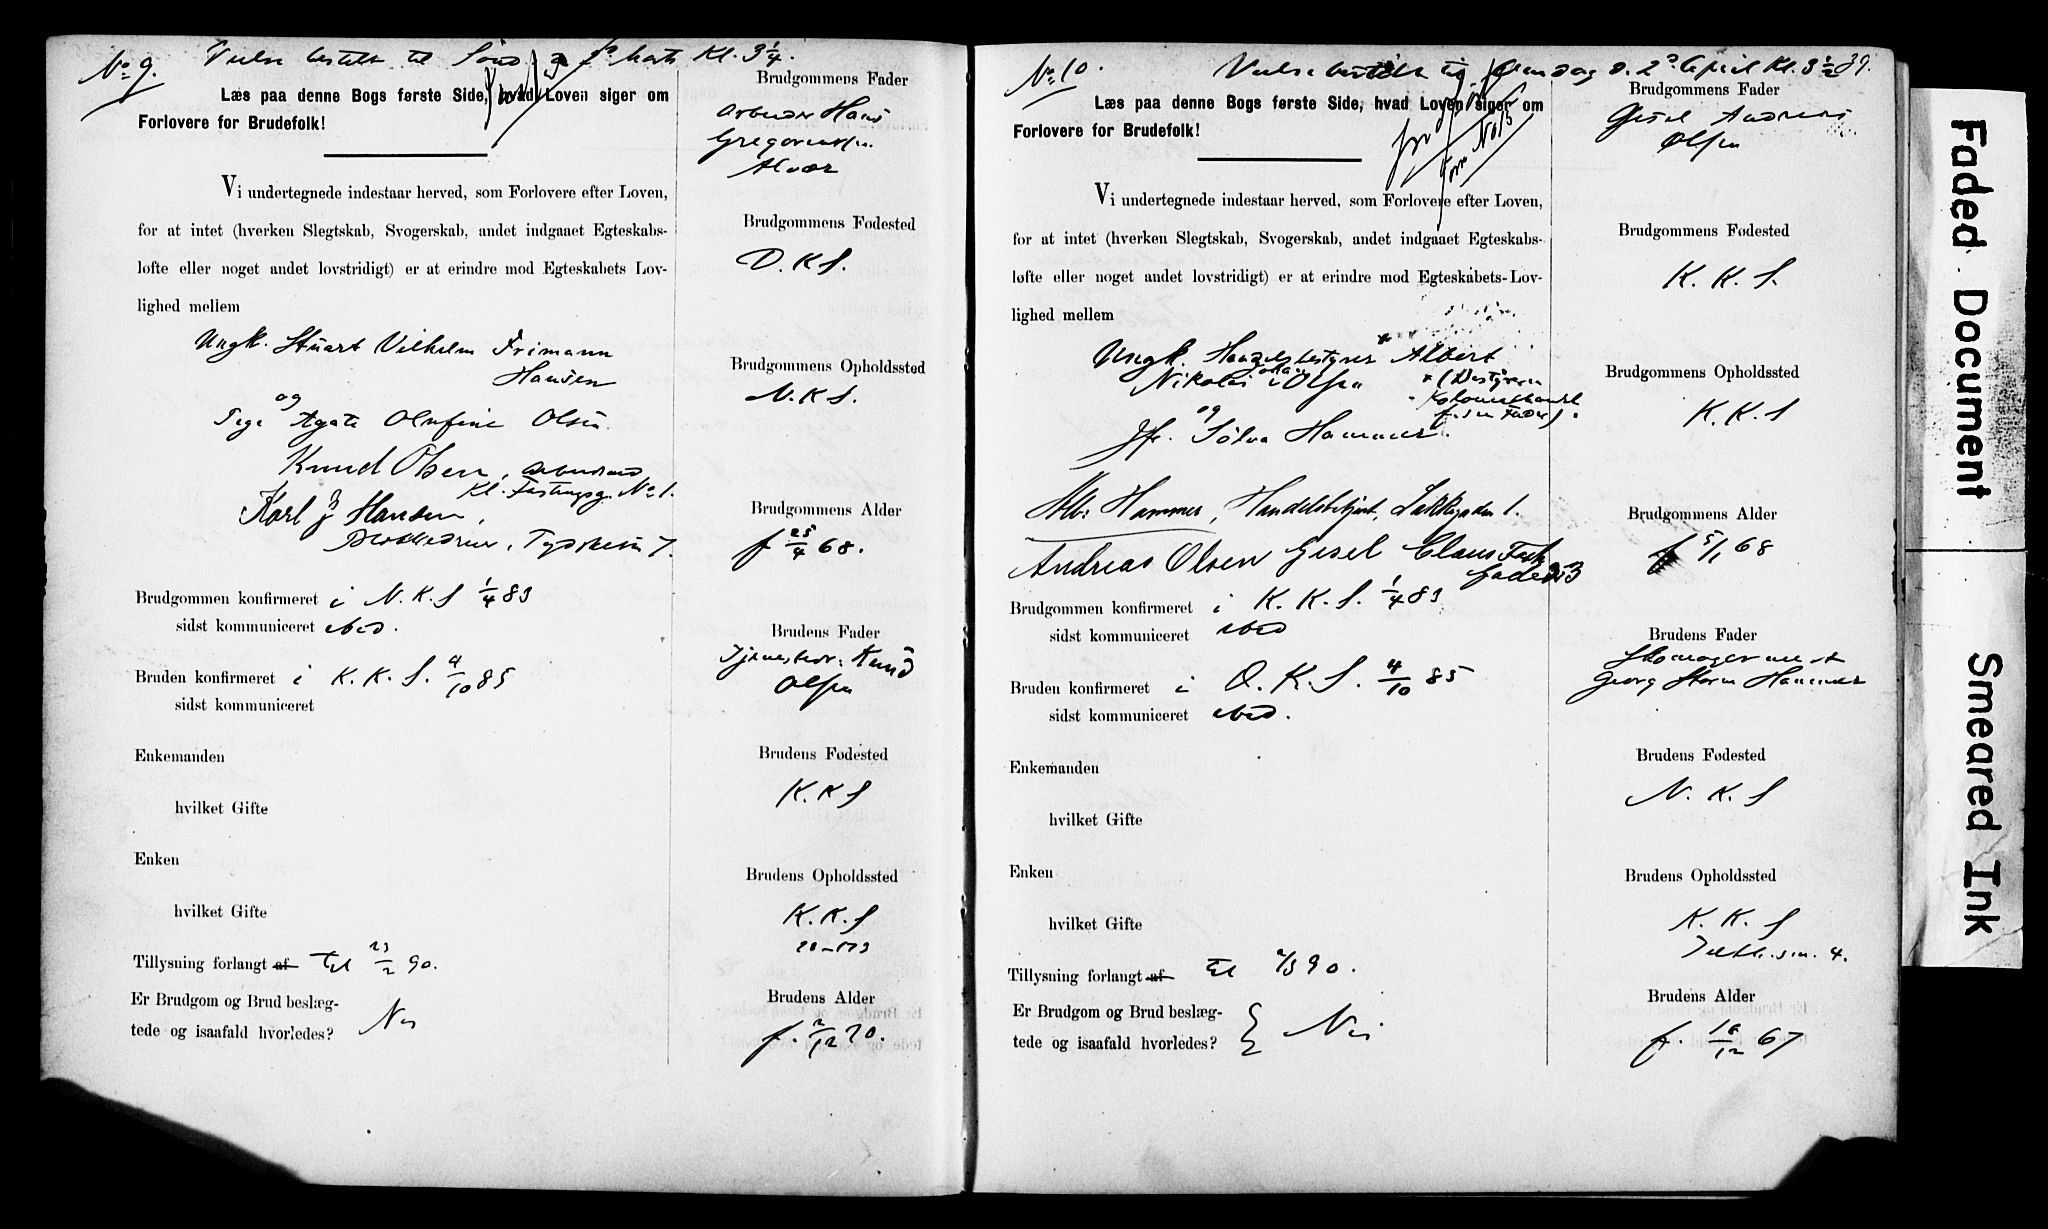 No 9. Vielse bestilt til Kl. 3 1/4.
Læs paa denne Bogs første Side, hvad Loven siger om
Forlovere for Brudefolk!
Vi undertegnede indestaar herved, som Forlovere efter Loven,
for at intet (hverken Slegtskab, Svogerskab, andet indgaaet Egteskabs-
løfte eller noget andet lovstridigt) er at erindre mod Egteskabets Lov-
lighed mellem
Ungk. Stuart Vilhelm Frimann
Hansen
og
Pige Agate Olufine Olsen
Knud Olsen, Arbeidsmd
Kl. Festningsg. No 1.
Karl J Hansen,
7.
Brudgommen konfirmeret i N. K. S 1/4 83
sidst kommuniceret ibid.
Bruden konfirmeret i K. K. S. 4/10 85
sidst kommuniceret
Enkemanden
hvilket Gifte
Enken
hvilket Gifte
Tillysning forlangt af til 23/2 90.
Er Brudgom og Brud beslæg-
tede og isaafald hvorledes? Nei
Brudgommens Fader
Arbeider Hans
Gregoriussen
Alvær
Brudgommens Fødested
D. K S.
Brudgommens Opholdssted
N. K S.
Brudgommens Alder
f 25/4 68.
Brudens Fader
Knud
Olsen
Brudens Fødested
K. K S
Brudens Opholdssted
K. K. S
Brudens Alder
f. 2/12 70.
No 10. Vielse bestilt til Onsdag d. 2 April Kl. 3 1/2 39.
Læs paa denne Bogs første Side, hvad Loven siger om
Forlovere for Brudefolk!
Vi undertegnede indestaar herved, som Forlovere efter Loven,
for at intet (hverken Slegtskab, Svogerskab, andet indgaaet Egteskabs-
løfte eller noget andet lovstridigt) er at erindre mod Egteskabets Lov-
lighed mellem
Ungk. Handelsbestyrer Albert
Nikolai Johan Olsen
og
Jfr. Sølva Hammer.
Alb: Hammer, Handelsbetjent, 1.
Andreas Olsen Gesel Claus
Gaden 23
Brudgommen konfirmeret i K. K. S. 1/4 83
sidst kommuniceret ibid
Bruden konfirmeret i D. K. S. 4/10 85
sidst kommuniceret ibid.
Enkemanden
hvilket Gifte
Enken
hvilket Gifte
Tillysning forlangt af til 2/3 90.
Er Brudgom og Brud beslæg-
tede og isaafald hvorledes? Nei
Brudgommens Fader
Gesel Andreas
Olsen
Brudgommens Fødested
K. K. S.
Brudgommens Opholdssted
K. K. S
Brudgommens Alder
f 5/1 68
Brudens Fader
Skomagermest
Georg Storm Hammer
Brudens Fødested
N. K. S
Brudens Opholdssted
K. K. S
4.
Brudens Alder
f. 18/12 67
Faded Document
Smeared Ink